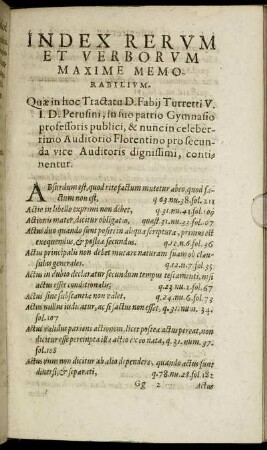 INDEX RERVM
ET VERBORVM
MAXIME MEMO-
RABILIVM.
Quæ in hoc Tractatu D. Fabij Turretti V.
I. D. Perusini, in suo patrio Gymnasio
professoris publici, & nunc in celeber-
rimo Auditorio Florentino pro secun-
da vice Auditoris dignissimi, conti-
nentur.
ABsurdum est, quod rite factum mutetur ab eo, quod fa-
ctum non est. q. 63 nu. 38. fol. 211
Actio in libello exprimi non debet, q. 31. nu. 41. fol. 109
Actionis mater, dicitur obligatio, quæst. 31. nu. 22. fol. 107
Actus duo quando sunt positi in aliqua scriptura, primus est
exequendus, & postea secundus. q. 12. n. 6. fol. 36
Actus principalis non debet mutare naturam suam ob clau-
sulas generales. q. 12. n. 7. fol. 35
Actus in dubio declaratur secundum tempus testamenti, nisi
actus esset conditionalis, q. 23. nu. 17. fol. 67
Actus sine substantia non valet. q. 24. nu. 6. fol. 73
Actus nullus indicatur, ac si factus non esset, q. 31. nu. 34.
fol. 107
Actus validus pariens actionem, licet postea actus pereat, non
dicitur esse perempta illa actio ex eo nata, q. 31. num. 37.
fol. 108
Actus unus non dicitur ab alio dependere, quando actus sunt
diuersi, & separati, q. 78. nu. 24. fol. 182
Gg 2 Actus